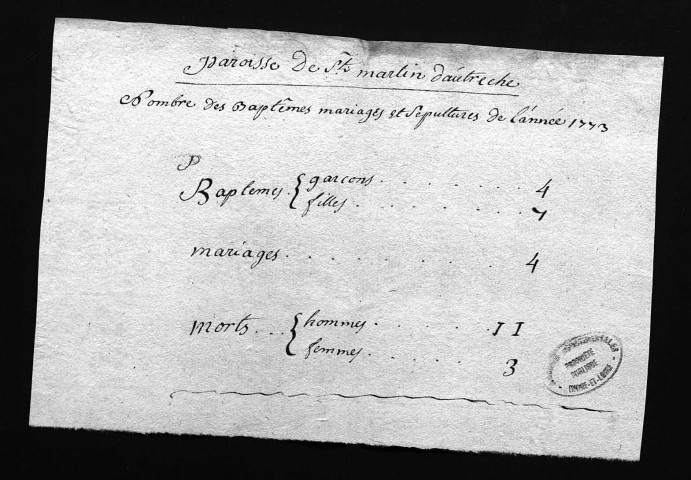 paroisse de St martin d'autreche
Nombre des Baptêmes mariages et Sepultures de l'année 1773
P
Baptemes { garcons . . . . . . . . 4
filles . . . . . . . . 7
mariages . . . . . . . . 4
morts . . . { hommes . . . . . . 11
femmes . . . . . . 3
DEPARTEMENTALES
PROPRIÉTÉ
PUBLIQUE
INDRE-ET-LOIRE